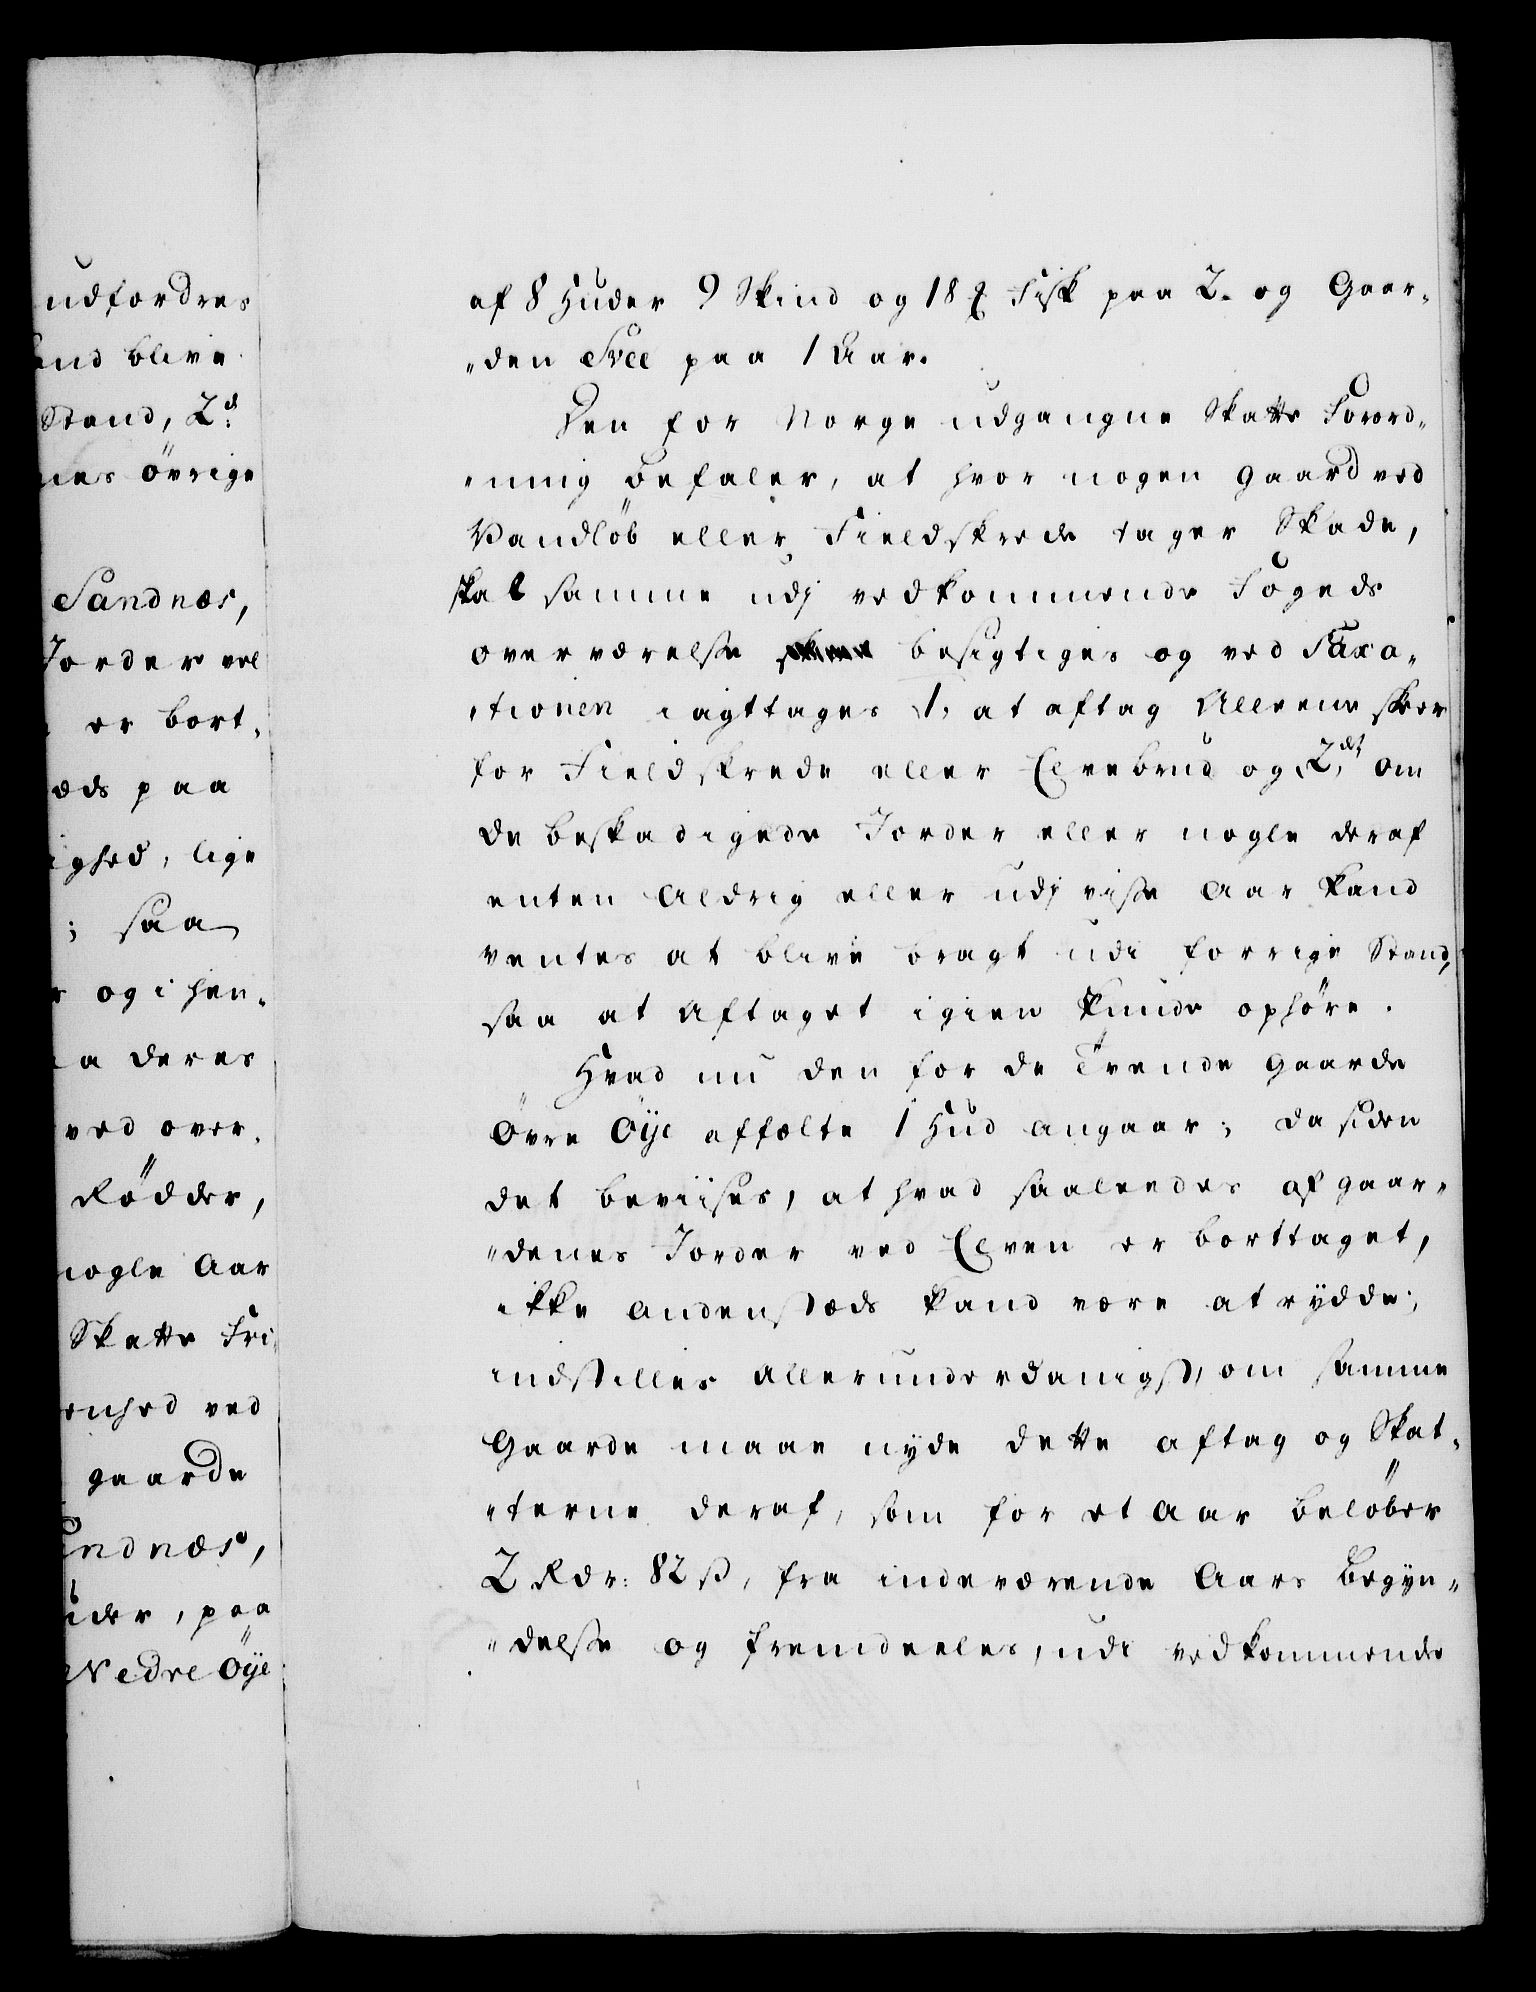 udfordres
and blive
Stand, 2d:
nes övrige
Sandnæs,
Jorder vel
er bort„
æds paa
ighed, lige
; saa
og i hen„
a deres
ved over„
Rödder,
nogle Aar
Skatte Fri„
enhed ved
gaarde
andnæs,
uder, paa
Nedre Öÿe
af 8 Huder 9 Skind og 18 ℔ Fisk paa 2. og Gaar„
„den Svee paa 1 Aar.
Den for Norge udgangne Skatte Forord„
„ning befaler, at hvor nogen Gaard ved
Vandlöb eller Fieldskrede tager Skade,
skal samme udj vedkommende Fogeds
overværelse besigtiges og ved Taxa„
„tionen iagttages 1, at aftag Alleene skeer
for Fieldskrede eller Elvebrud og 2det, om
de beskadigede Jorder eller nogle deraf
enten Aldrig eller udj visse Aar kand
ventes at blive bragt udi forrige Stand,
saa at Aftaget igien kunde ophöre.
Hvad nu den for de Trende Gaarde
Övre Öÿe affælte 1 Hud angaar; da siden
det beviises, at hvad saaleedes af gaar„
„denes Jorder ved Elven er borttaget,
ikke andenstæds kand være at rÿdde;
indstilles allerunderdanigst, om samme
Gaarde maae nÿde dette aftag og Skat„
„terne deraf, som for et Aar belöber
2 Rdr: 82 ß, fra indeværende Aars Begÿn„
„delse og fremdeeles, udi vedkommende